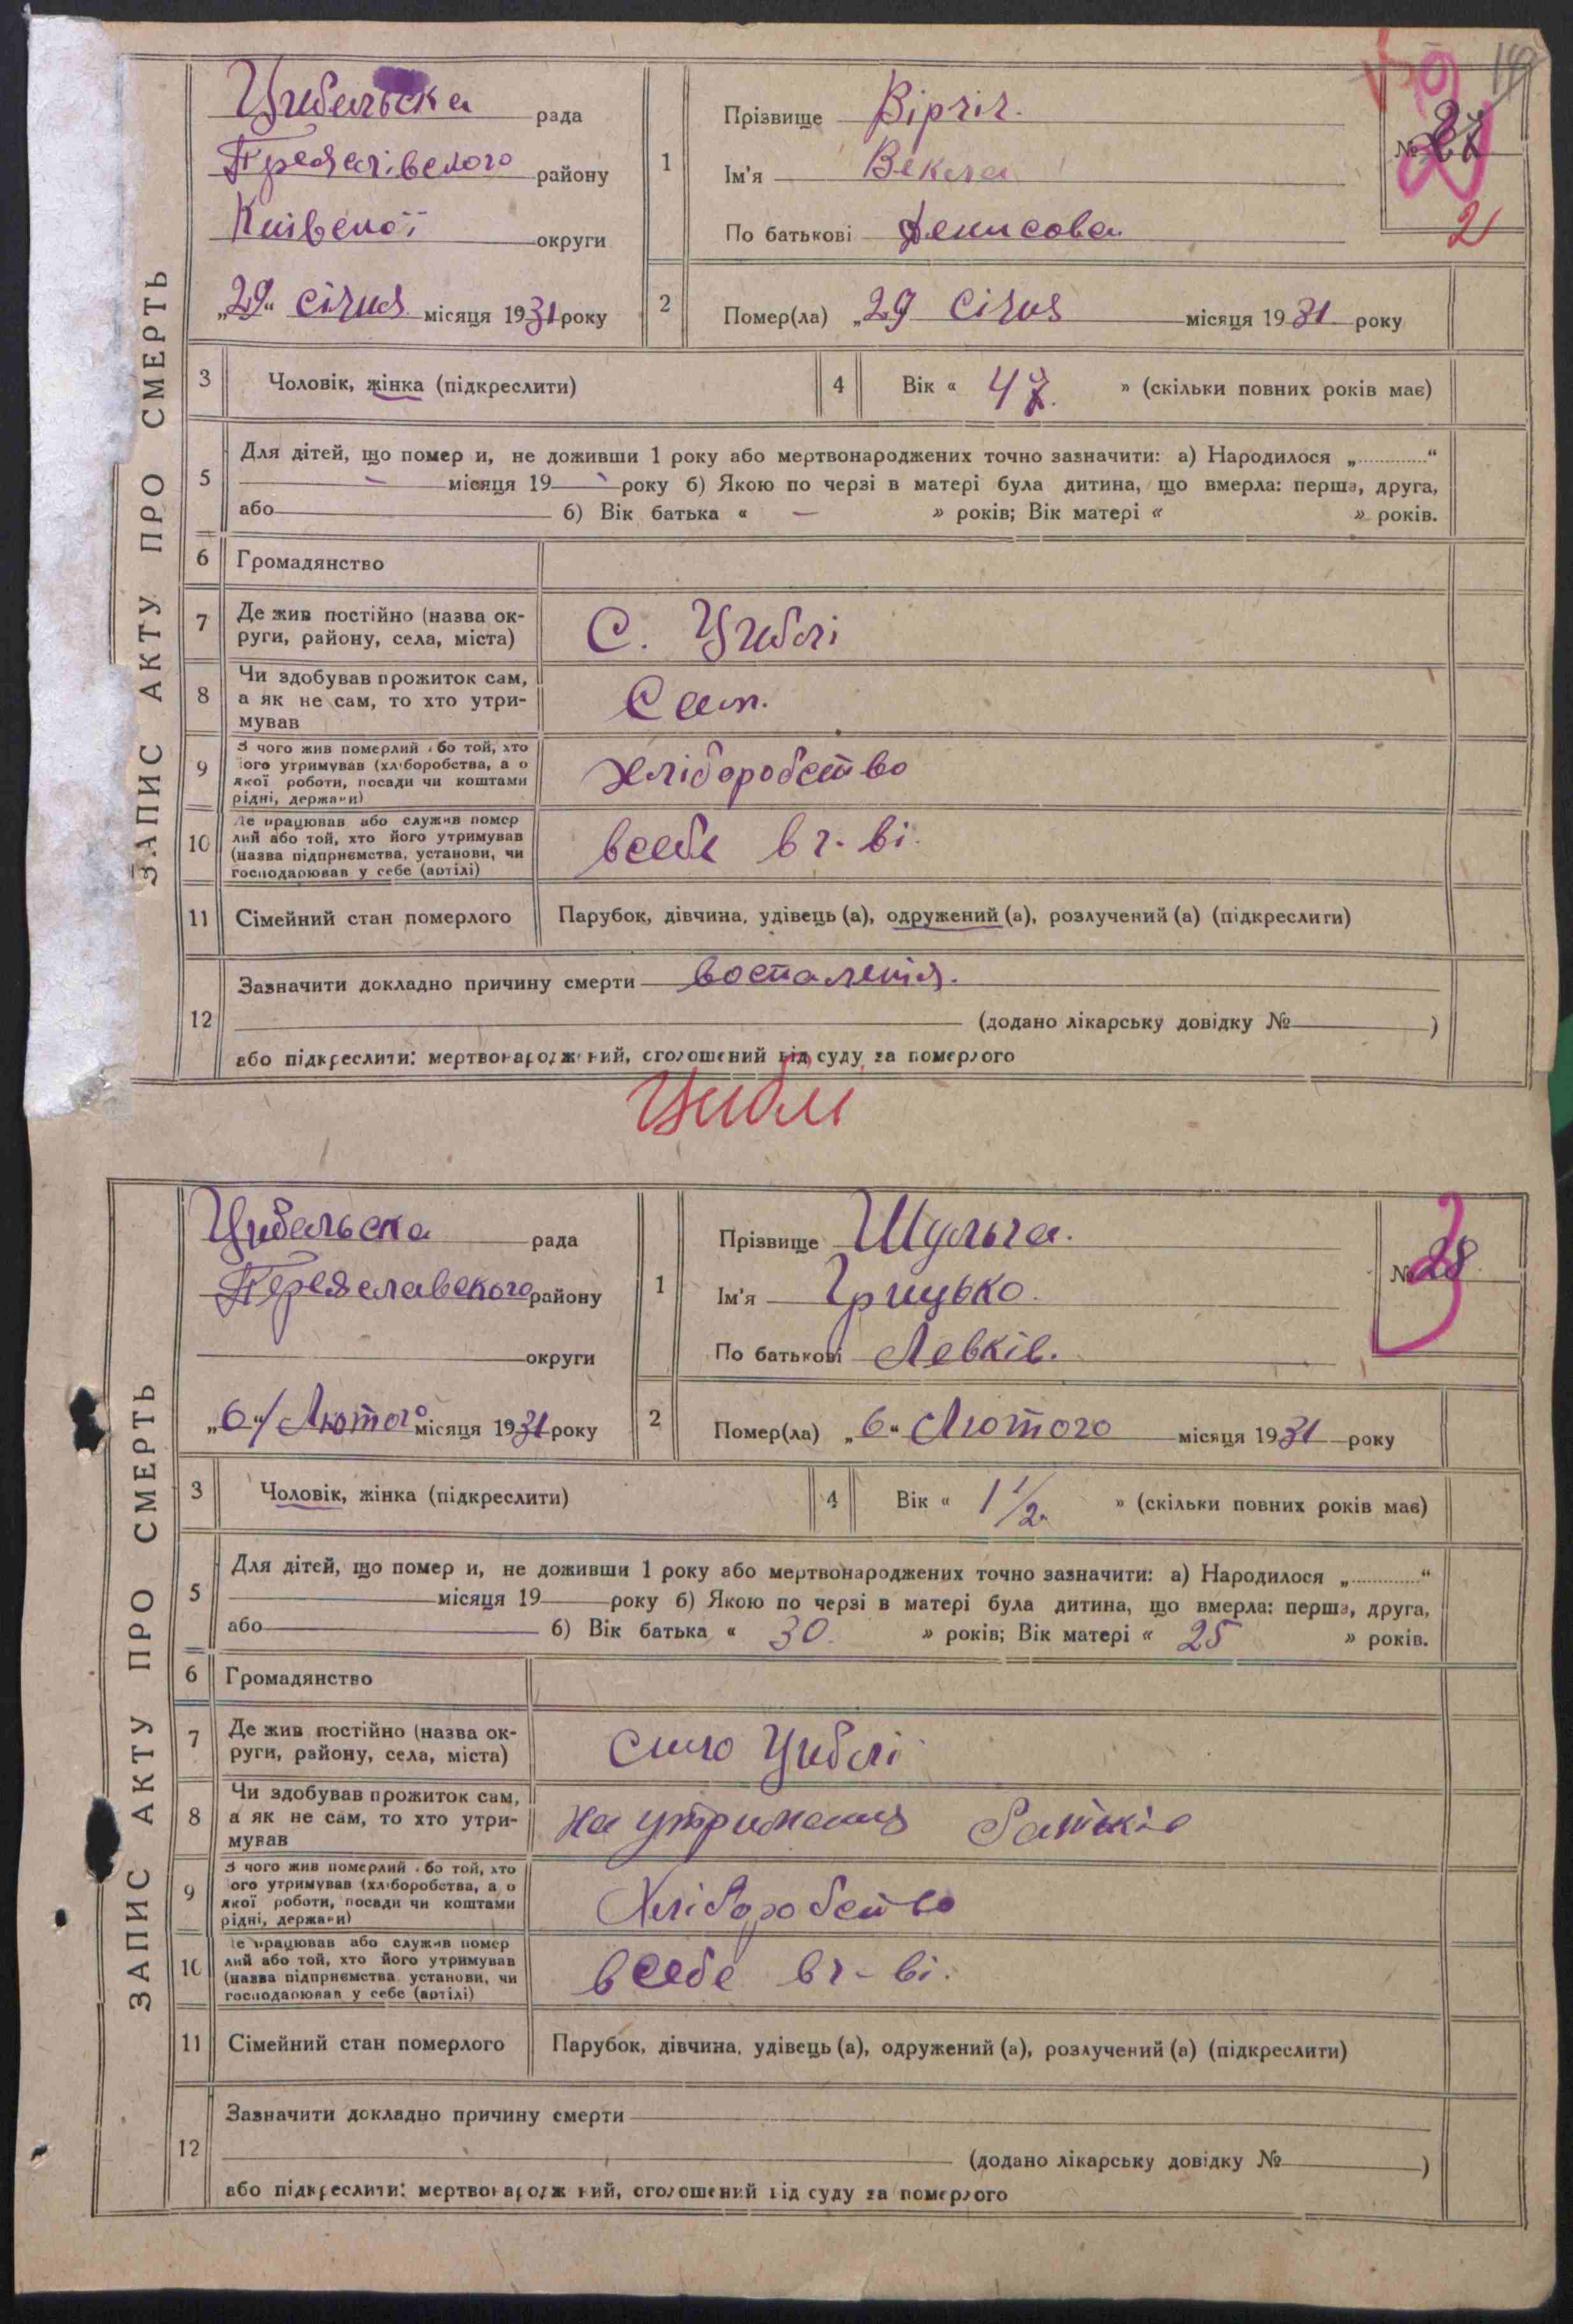 ЗАПИС АКТУ ПРО СМЕРТЬ
Цибельська рада
району
Київської округи
„29“ січня місяця 1931 року
1
Прізвище Вірчіч.
Ім'я Векла
По батькові Денисова
№ 27
2
2 Помер(ла) „29 Січня місяця 1931 року
3 Чоловік, жінка (підкреслити)
4 Вік « 47. » (скільки повних років має)
5 Для дітей, що помер и, не доживши 1 року або мертвонароджених точно зазначити: а) Народилося „............“
місяця 19 року б) Якою по черзі в матері була дитина, що вмерла: перша, друга,
або б) Вік батька « — » років; Вік матері « » років.
6 Громадянство
7 Де жив постійно (назва ок-
руги, району, села, міста)
С. Циблі
8 Чи здобував прожиток сам,
а як не сам, то хто утри-
мував
Сам.
9 З чого жив померлий або той, хто
ого утримував (хліборобства, а о
якої роботи, посади чи коштами
рідні, держави)
хліборобство
10 Де працював або служив помер
лий або той, хто його утримував
(назва підприємства, установи, чи
господарював у себе (артілі)
всебе в г-ві.
11 Сімейний стан померлого Парубок, дівчина, удівець (а), одружений (а), розлучений (а) (підкреслити)
12 Зазначити докладно причину смерти воспаленія.
(додано лікарську довідку № )
або підкреслити: мертвонароджений, оголошений від суду за померлого
Цибли
ЗАПИС АКТУ ПРО СМЕРТЬ
Цибельська рада
Переяславського району
округи
„6“ Лютого місяця 1931 року
1
Прізвище Шульга.
Ім'я Грицько.
По батькові Левків.
№ 28
2 Помер(ла) „6“ Лютого місяця 1931 року
3 Чоловік, жінка (підкреслити)
4 Вік « 1 1/2 » (скільки повних років має)
5 Для дітей, що помер и, не доживши 1 року або мертвонароджених точно зазначити: а) Народилося „............“
місяця 19 року б) Якою по черзі в матері була дитина, що вмерла: перша, друга,
або б) Вік батька « 30. » років; Вік матері « 25 » років.
6 Громадянство
7 Де жив постійно (назва ок-
руги, району, села, міста)
село Циблі
8 Чи здобував прожиток сам,
а як не сам, то хто утри-
мував
на утримання батьків
9 З чого жив померлий або той, хто
ого утримував (хліборобства, а о
якої роботи, посади чи коштами
рідні, держави)
Хліборобство
10 Де працював або служив помер
лий або той, хто його утримував
(назва підприємства установи, чи
господарював у себе (артілі)
всебе в г-ві.
11 Сімейний стан померлого Парубок, дівчина, удівець (а), одружений (а), розлучений (а) (підкреслити)
12 Зазначити докладно причину смерти
(додано лікарську довідку № )
або підкреслити: мертвонароджений, оголошений від суду за померлого